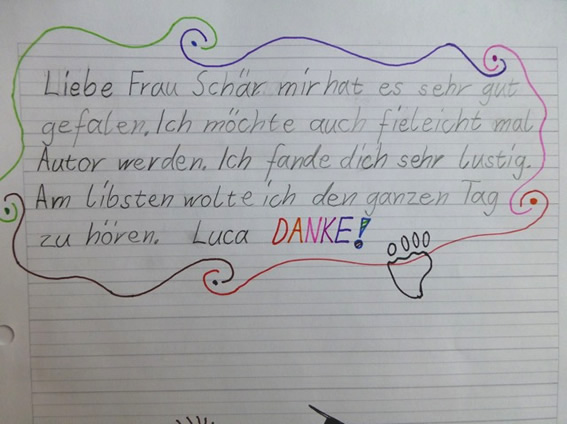 Liebe Frau Schär mir hat es sehr gut
gefalen. Ich möchte auch fieleicht mal
Autor werden. Ich fande dich sehr lustig.
Am libsten wolte ich den ganzen Tag
zu hören. Luca DANKE!